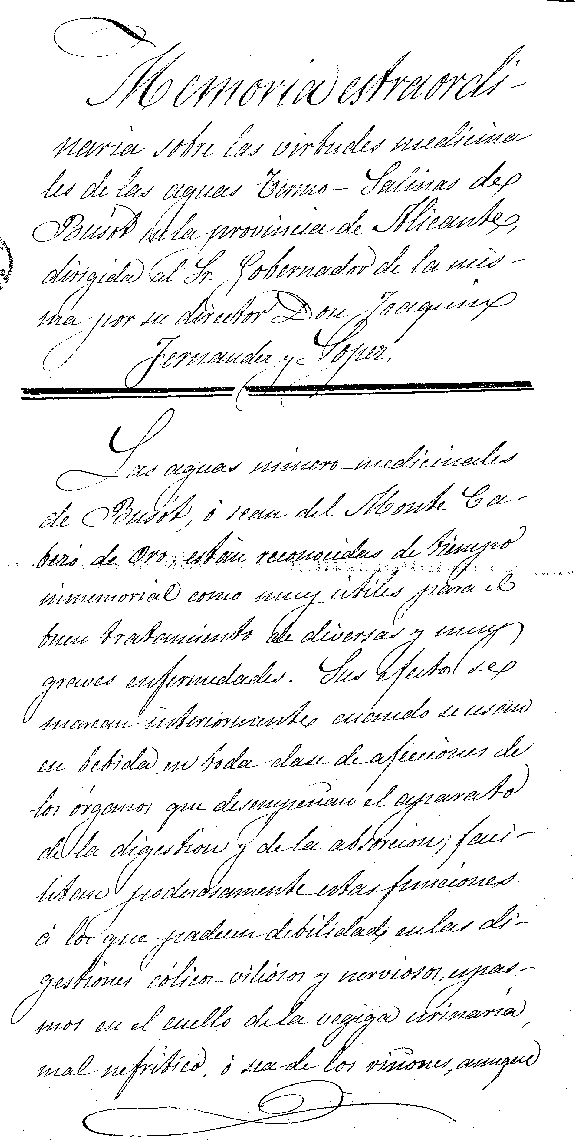 Memoria estraordi-
naria sobre las virtudes medicina
les de las aguas Termo-Salinas de
Busot en la provincia de Alicante,
dirigida al Sr. Gobernador de la mis-
ma por su director Don Joaquin
Fernandez y Lopez.
Las aguas minero-medicinales
de Busot, ó sean del Monte Ca-
bezó de Oro, están reconocidas de tiempo
inmemorial como muy útiles para el
buen tratamiento de diversas y muy
graves enfermedades. Sus efectos se
marcan interiormente cuando se usan
en bebida en toda clase de afecciones de
los órganos que desempeñan el aparato
de la digestion y de la absorcion; faci-
litan poderosamente estas funciones
á los que padecen debilidad, en las di-
gestiones cólico-viliosos y nerviosos, espas-
mos en el cuello de la vegiga urinaria,
mal nefritico, ó sea de los riñones, aunque